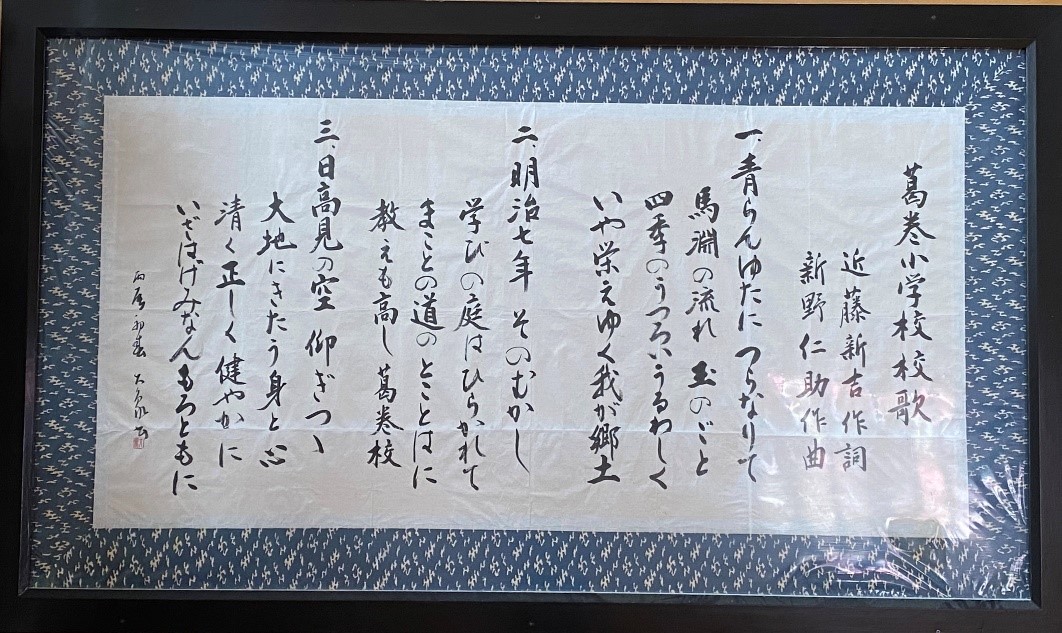 葛巻小学校校歌
近藤新吉作詞
新野仁助作曲
一、青らんゆたに つらなりて
馬淵の流れ 玉のごと
四季のうつろいうるわしく
いや栄えゆく我が郷土
二、明治七年 そのむかし
学びの庭はひらかれて
まことの道の とことはに
教えも高し 葛巻校
三、日高見の空 仰ぎつゝ
大地にきたう身と心
清く正しく 健やかに
いざはげみなんもろともに